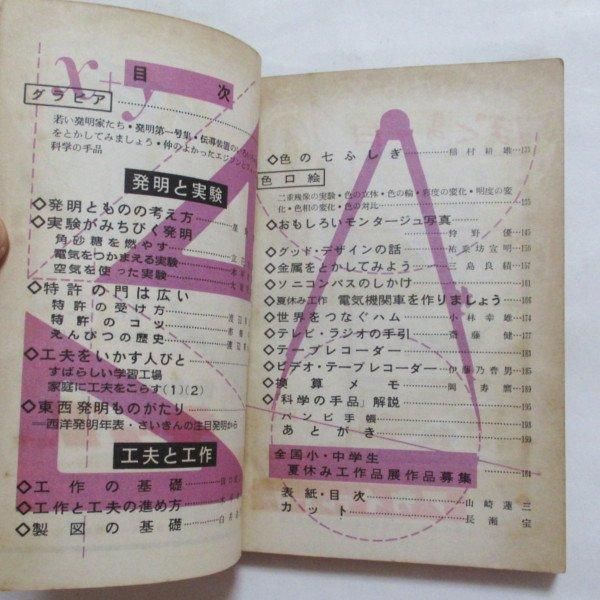 x+y
目次
グラビア
若い発明家たち・発明第一号集・伝導装置の
をとかしてみましょう・仲のよかったエジソンと
科学の手品
発明と実験
◇発明とものの考え方
◇実験がみちびく発明
角砂糖を燃やす
電気をつかまえる実験
空気を使った実験
◇特許の門は広い
特許の受け方
特許のコツ
えんぴつの歴史
◇工夫をいかす人びと
すばらしい学習工場
家庭に工夫をこらす(1)(2)
◇東西発明ものがたり
―西洋発明年表・さいきんの注目発明から
工夫と工作
◇工作の基礎
◇工作と工夫の進め方
◇製図の基礎
◇色の七ふしぎ 稲村耕雄
色口絵
二重残像の実験・色の立体・色の輪・彩度の変化・明度の変
化・色相の変化・色の対比
◇おもしろいモンタージュ写真
狩野優
◇グッド・デザインの話 祐乗坊宣明
◇金属をとかしてみよう 三島良績
◇ソニコンパスのしかけ 161
◇夏休み工作 電気機関車を作りましょう
◇世界をつなぐハム 小林幸雄
◇テレビ・ラジオの手引 斎藤健
◇テープレコーダー
◇ビデオ・テープレコーダー 伊藤乃曹男
◇換算メモ 岡寿麿 189
◇「科学の手品」解説 195
バンビ手帳 198
あとがき
全国小・中学生
夏休み工作品展作品募集 184
表紙・目次 山崎蓮三
カット 長瀬宝